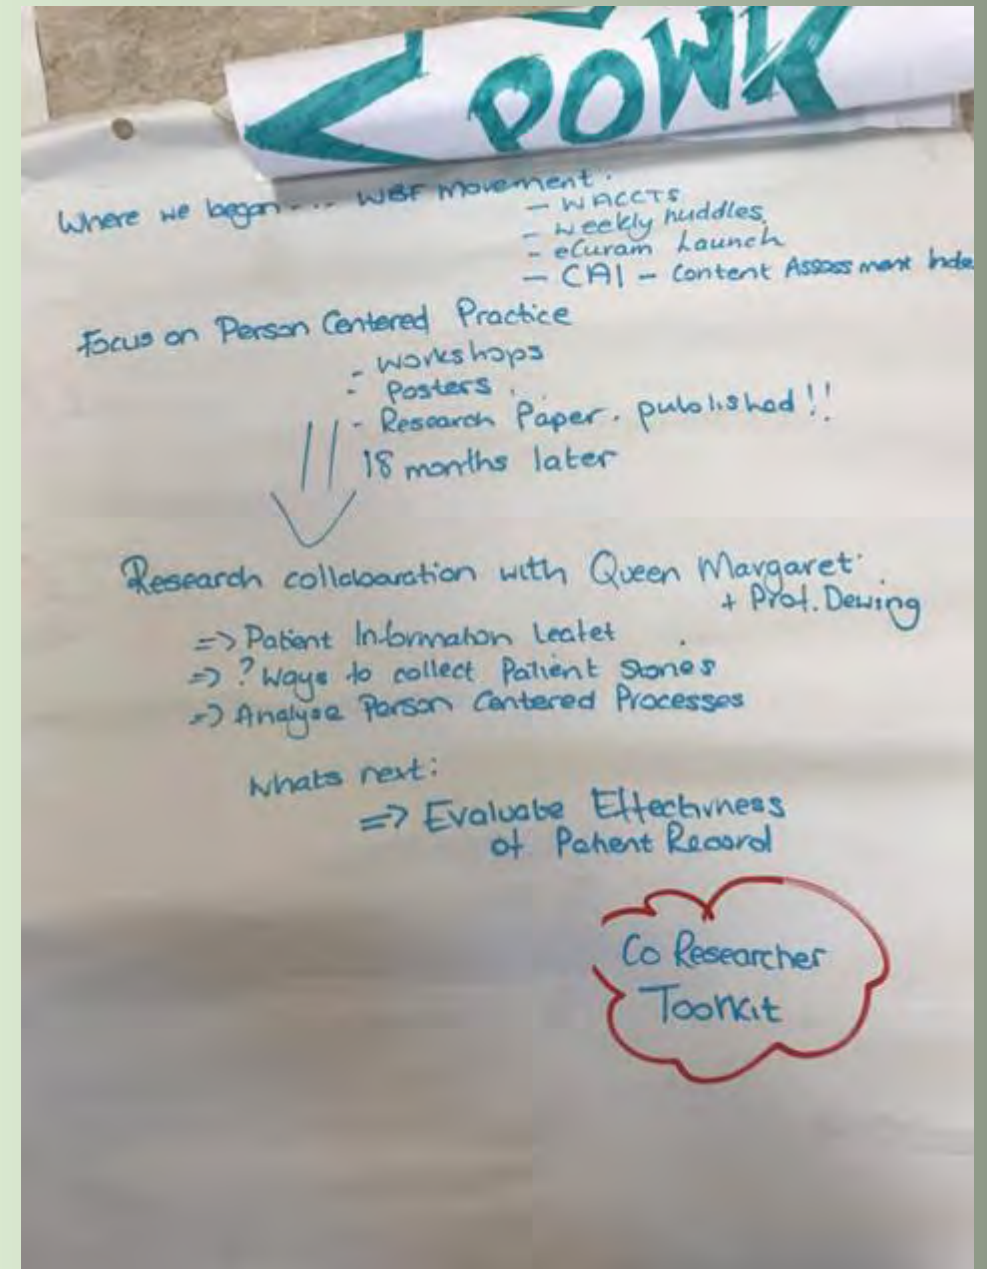 POWK
Where we began... WBF Movement:
- WACCTS
- weekly huddles
- eCuram Launch
- CAI - Content Assessment Inde
Focus on Person Centered Practice
- workshops
- Posters
- Research Paper. published!!
18 months later
Research collaboration with Queen Margaret
+ Prof. Dewing
=> Patient Information Leaflet
=> ? Ways to collect Patient Stories
=> Analyse Person Centered Processes
Whats next:
=> Evaluate Effectivness
of Patient Record
Co Researcher
Toolkit